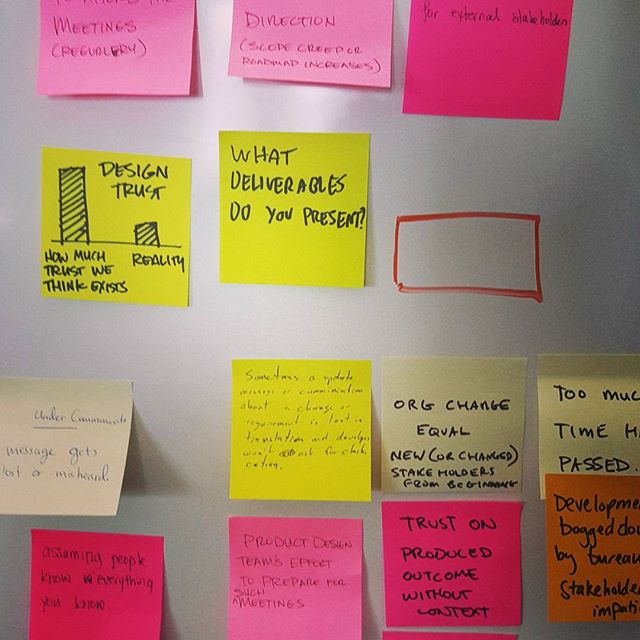 MEETINGS
(REGULARLY)
DIRECTION
(SCOPE CREEP OR
ROADMAP INCREASES)
for external stakeholders
DESIGN
TRUST
HOW MUCH
TRUST WE
THINK EXISTS
REALITY
WHAT
DELIVERABLES
DO YOU PRESENT?
Under Communicate
message gets
lost or misheard.
Sometimes a update
message or communication
about a change or
requirement is lost in
translation and develops
won't ask for
ORG CHANGE
EQUAL
NEW (OR CHANGED)
STAKEHOLDERS
FROM BEGINNING
TOO MUC
TIME H
PASSED.
assuming people
know everything
you know.
PRODUCT DESIGN
TEAM'S EFFORT
TO PREPARE FOR
SUCH
MEETINGS
TRUST ON
PRODUCED
OUTCOME
WITHOUT
CONTEXT
Developme
bogged dow
by bureau
Stakeholde
impati